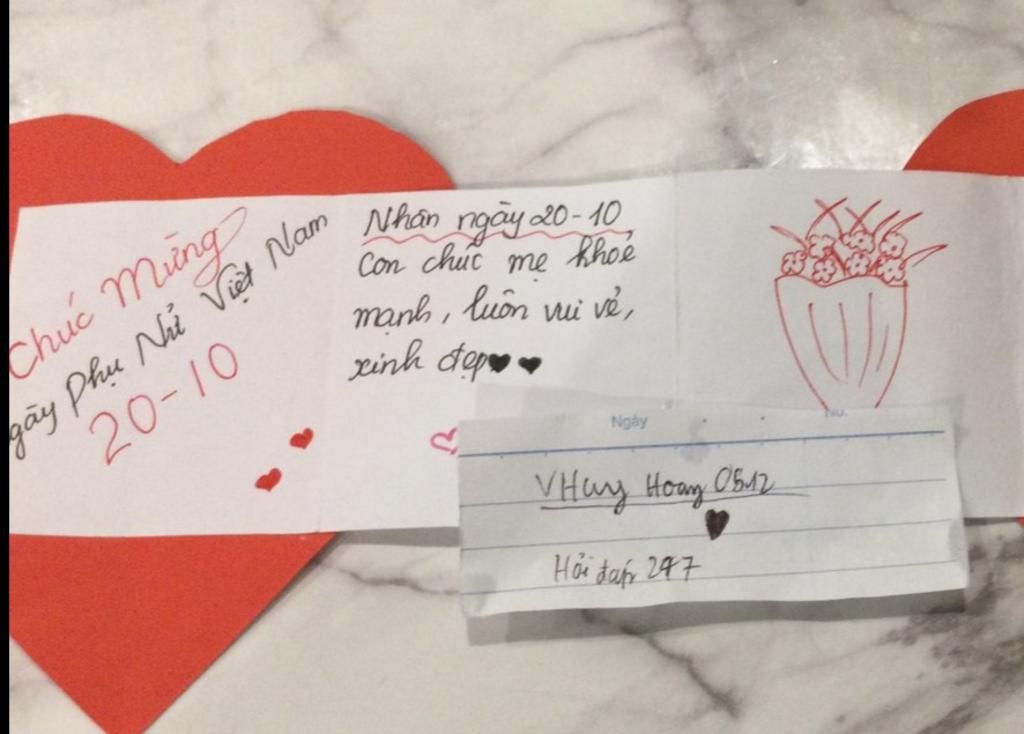 Chúc Mừng
gày Phụ Nữ Việt Nam
20-10
Nhân ngày 20-10
Con chúc mẹ khoẻ
mạnh, luôn vui vẻ,
xinh đẹp
Ngày
No.
VHuy Hoang 0512
Hỏi đáp 247